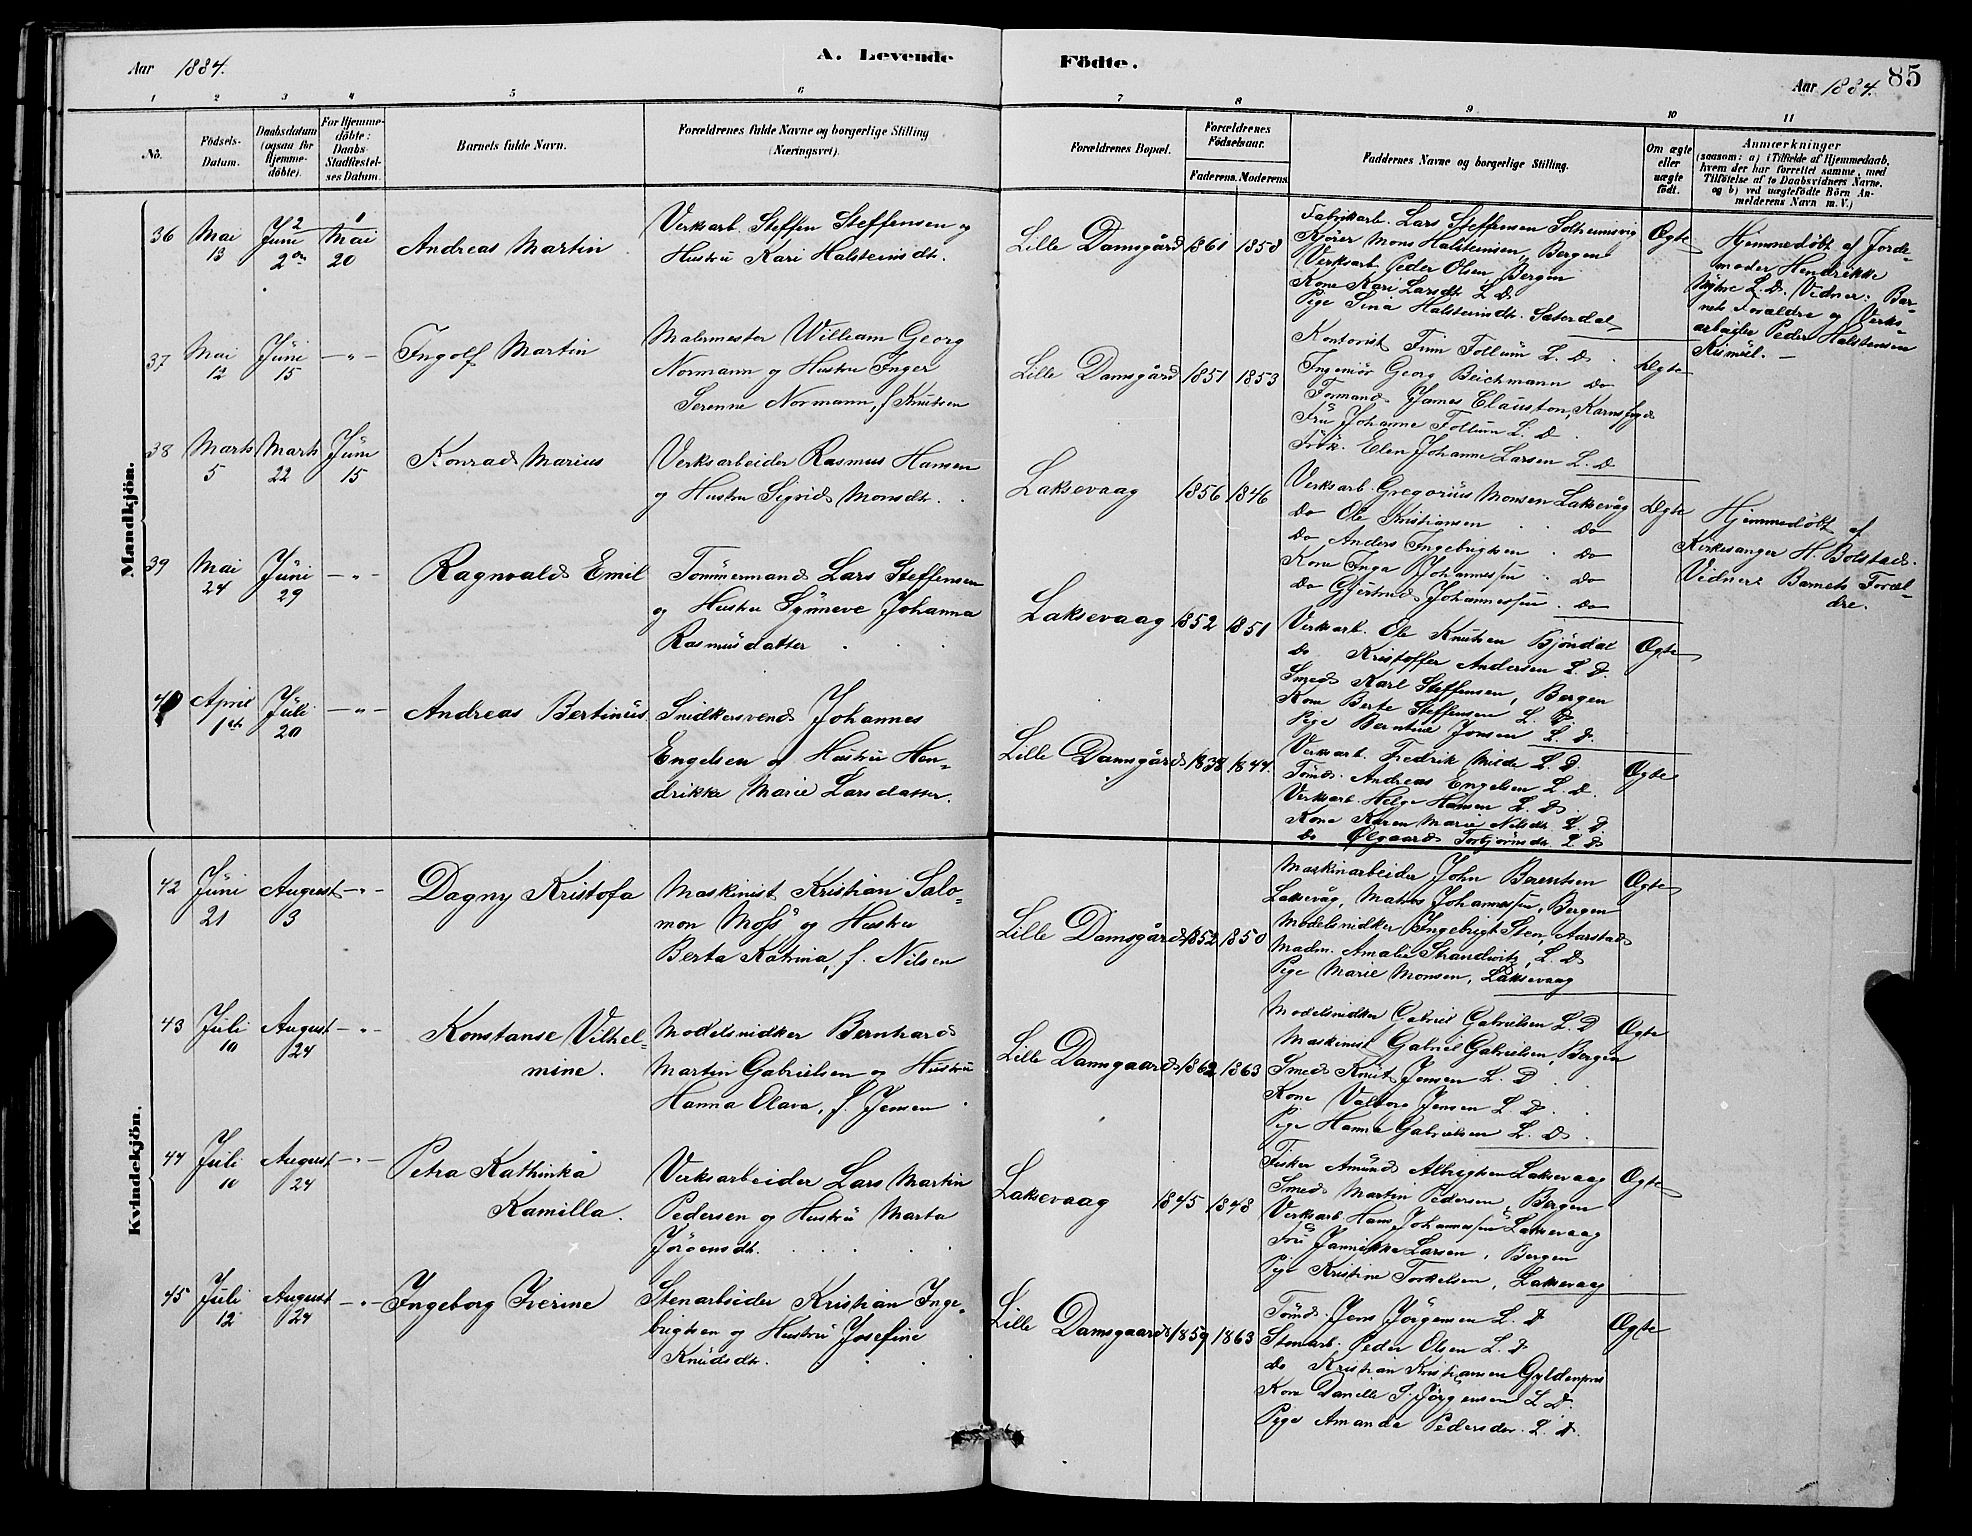 Aar 1884.
A. Levende
Födte.
Aar 1884.
85
1 2 3 4 5 6 7 8 9 10 11
No.
Födsels-
Datum.
Daabsdatum
(ogsaa för
Hjemme-
döbte).
For Hjemme-
döbte:
Daabs-
Stadfæstel-
ses Datum.
Barnets fulde Navn.
Forældrenes fulde Navne og borgerlige Stilling
(Næringsvei).
Forældrenes Bopæl.
Forældrenes
Födselsaar.
Faderens. Moderens.
Faddernes Navne og borgerlige Stilling.
Om ægte
eller
uægte
födt.
Anmærkninger
(saasom: a) i Tilfælde af Hjemmedaab,
hvem der har forrettet samme, med
Tilföielse af to Daabsvidners Navne,
og b) ved uægtefödte Börn An-
melderens Navn m. V.)
Mandkjön.
36
Mai
13
Juni
2
Mai
20
Andreas Martin
Verksarb. Steffen Steffensen og
Hustru Kari Halsteinsdtr.
Lille Damsgård 1861 1858
Fabrikarb. Lars Steffensen Solheimsvig
Kjörer Mons Halsteinsen, Bergen
Verksarb. Peder Olsen, Bergen
Kone Kari Larsdtr. L. D.
Pige Sina Halsteinsdtr. Sæterdal
Ægte
Hjemmedöbt af Jorde-
moder Hendrikke
L. D. Vidner: Bar-
nets Forældre og Verks-
arbeider Peder Halstensen
37
Mai
12
Juni
15
- " -
Ingolf Martin
Malermester William Georg
Normann og Hustru Inger
Serenne Normann, f. Knutsen
Lille Damsgård 1851 1853
Kontorist Finn Follum L. D.
Ingeniör Georg Beichmann do
Formand James Clauston,
Fru Johanne Follum L. D.
Frök. Elen Johanne Larsen L. D
Ægte
38
Marts
5
Marts
22
Juni
15
Konrad Marius
Verksarbeider Rasmus Hansen
og Hustru Sigrid Monsdtr.
Laksevaag 1856 1846
Verksarb. Gregorius Monsen Laksevåg
do Ole Kristiansen do
do Anders Ingebrigtsen do
Kone Inga Johannessen do
do Gjertrud Johannessen do
Ægte
Hjemmedöbt af
Kirkesanger H. Bolstad.
Vidner: Barnets Foræl-
dre.
39
Mai
24
Juni
29
- " -
Ragnvald Emil
Tömmermand Lars Steffensen
og Hustru Synneve Johanna
Rasmusdatter
Laksevaag 1852 1851
Verksarb. Ole Knutsen Bjöndal
do Kristoffer Andersen L. D.
Smed Karl Steffensen, Bergen
Kone Berte Steffensen L. D.
Pige Berntine Jonsen L. D.
Ægte
April
1ste
Juli
20
- " -
Andreas Bertinus
Snidkersvend Johannes
Engelsen og Hustru Hen-
drikke Marie Larsdatter.
Lille Damsgård 1838 1844.
Verksarb. Fredrik Milde L. D.
Tömd. Andreas Engelsen L. D.
Verksarb. Helge Hansen L. D.
Kone Karen Marie Nilsdtr. L. D.
do Olgaard Torbjörnsdtr. L. D
Ægte
Kvindekjön.
42
Juni
21
August
3
- " -
Dagny Kristofa
Maskinist Kristian Salo-
mon Moss og Hustru
Berta Katrina, f. Nilsen
Lille Damsgård 1852 1850
Maskinarbeider John Berentsen
Laksevåg, Matros Johannessen, Bergen
Modelsnidker Ingebrigt Sten, Aarstad
Madm. Amalie Strandvitz, L. D
Pige Marie Monsen, Laksevaag
Ægte
43
Juli
10
August
24
- " -
Konstanse Vilhel-
mine.
Modelsnidker Bernhard
Martin Gabrielsen og Hustru
Hanna Olava, f. Jensen
Lille Damsgaard 1862 1863
Modelsnidker Gabriel Gabrielsen L. D
Maskinist Gabriel Gabrielsen, Bergen
Smed Knut Jensen L. D
Kone Valborg Jensen L. D.
Pige Hanna Gabrielsen L. D.
Ægte
44
Juli
10
August
24
- " -
Petra Kathinka
Kamilla.
Verksarbeider Lars Martin
Pedersen og Hustru Marta
Jörgensdtr.
Laksevaag 1845 1848
Fisker Amund Albrigtsen Laksevaag
Smed Martin Pedersen, Bergen
Verksarb. Hans Johannessen Laksevaag
Fru Jannikka Larsen, Bergen
Pige Kristine Torkelsen, Laksevaag
Ægte
45
Juli
12
August
24
- " -
Ingeborg Iverine
Stenarbeider Kristian Inge-
brigtsen og Hustru Josefine
Knudsdtr.
Lille Damsgaard 1859 1863
Tömd. Jens Jörgensen L. D
Stenarb. Peder Olsen L. D
do Kristian Kristiansen Gyldenpris
Kone Danelle J. Jörgensen L D.
Pige Amanda L. D.
Ægte